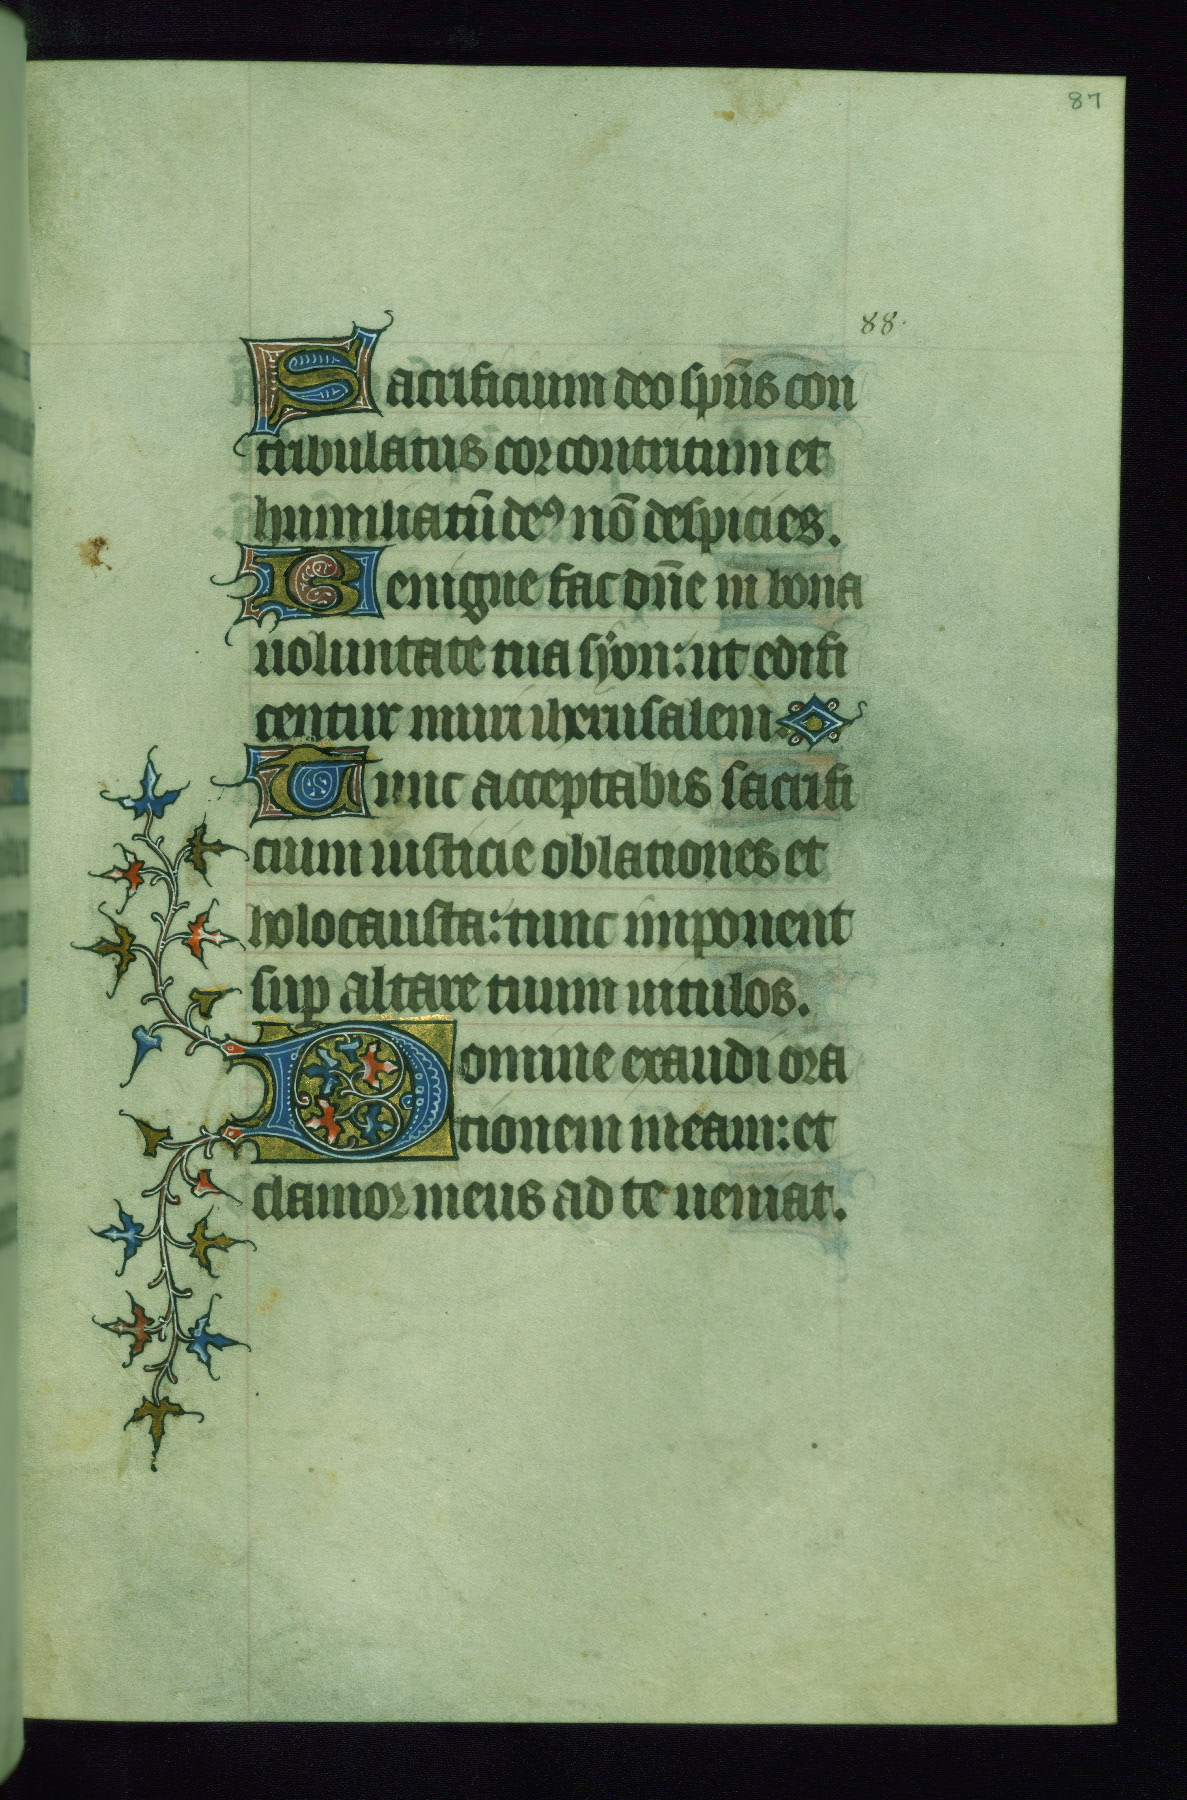 87
88.
Sacrificium deo sp̄us con
tribulatus cor contritum et
humiliatū deꝰ nō despicies.
Benigne fac dn̄e in bona
uoluntate tua syon: ut edifi
centur muri iherusalem.
Tunc acceptabis sacrifi
cium iusticie oblationes et
holocausta: tunc imponent
sup altare tuum uitulos.
Domine exaudi ora
tionem meam: et
clamor meus ad te ueniat.